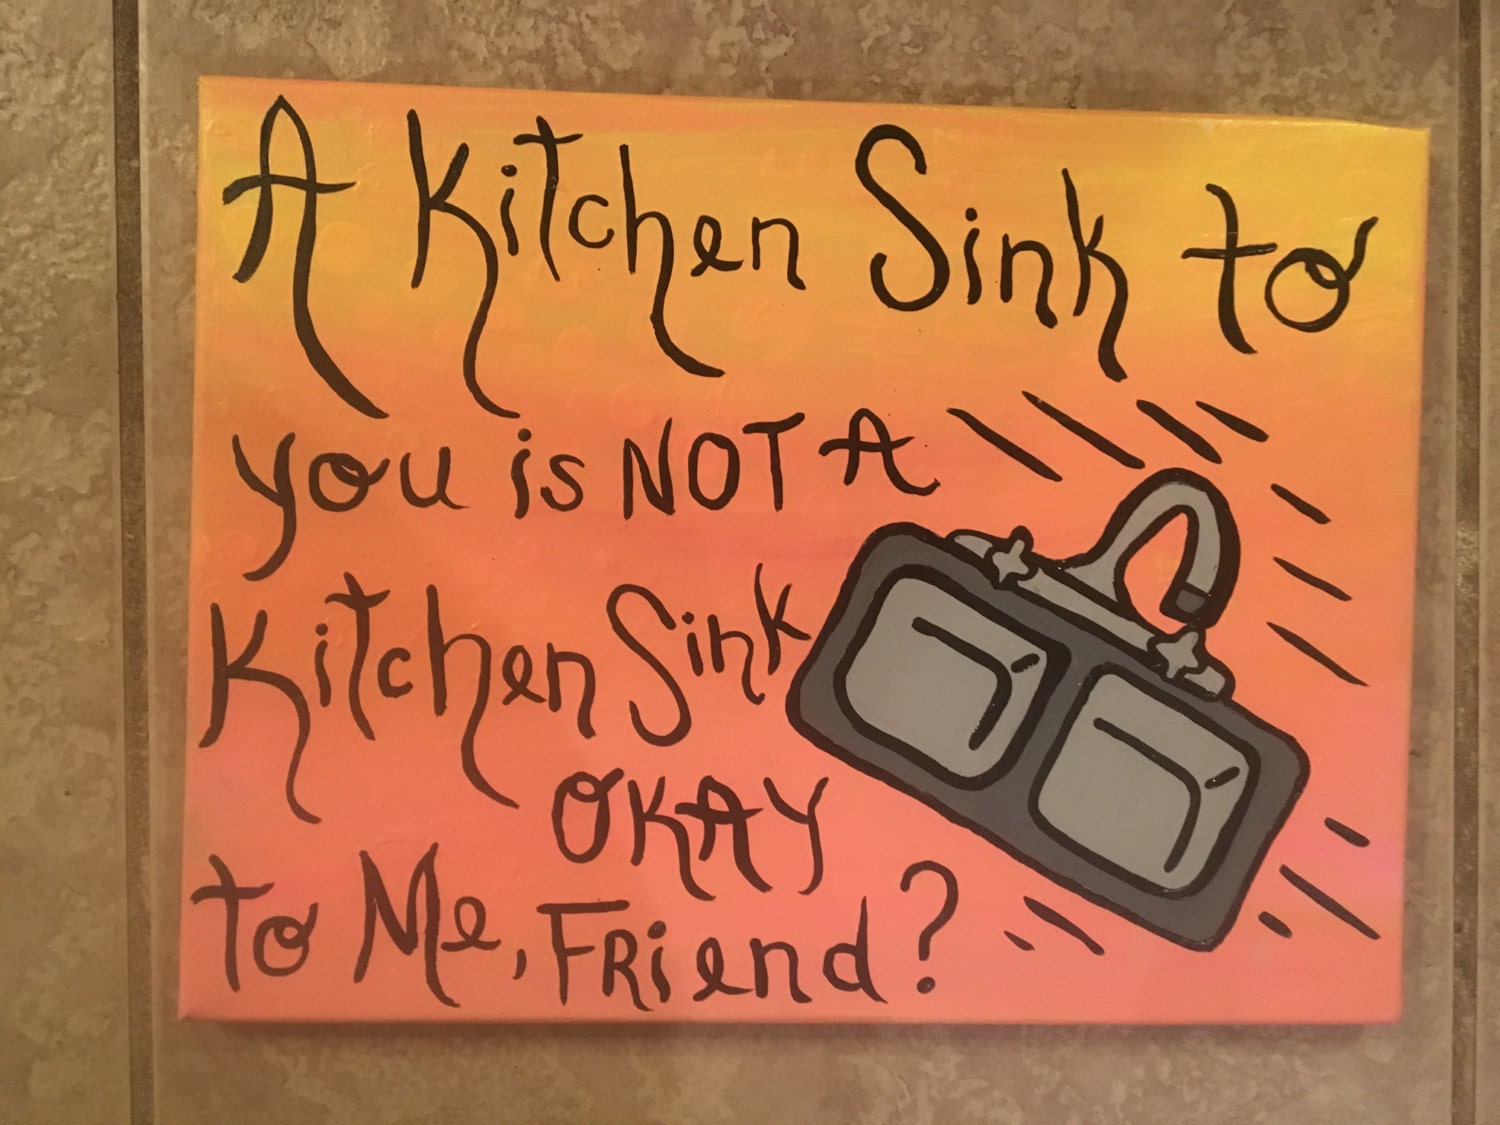 A Kitchen Sink to
you is NOT A
Kitchen Sink
OKAY
to Me, FRiend?